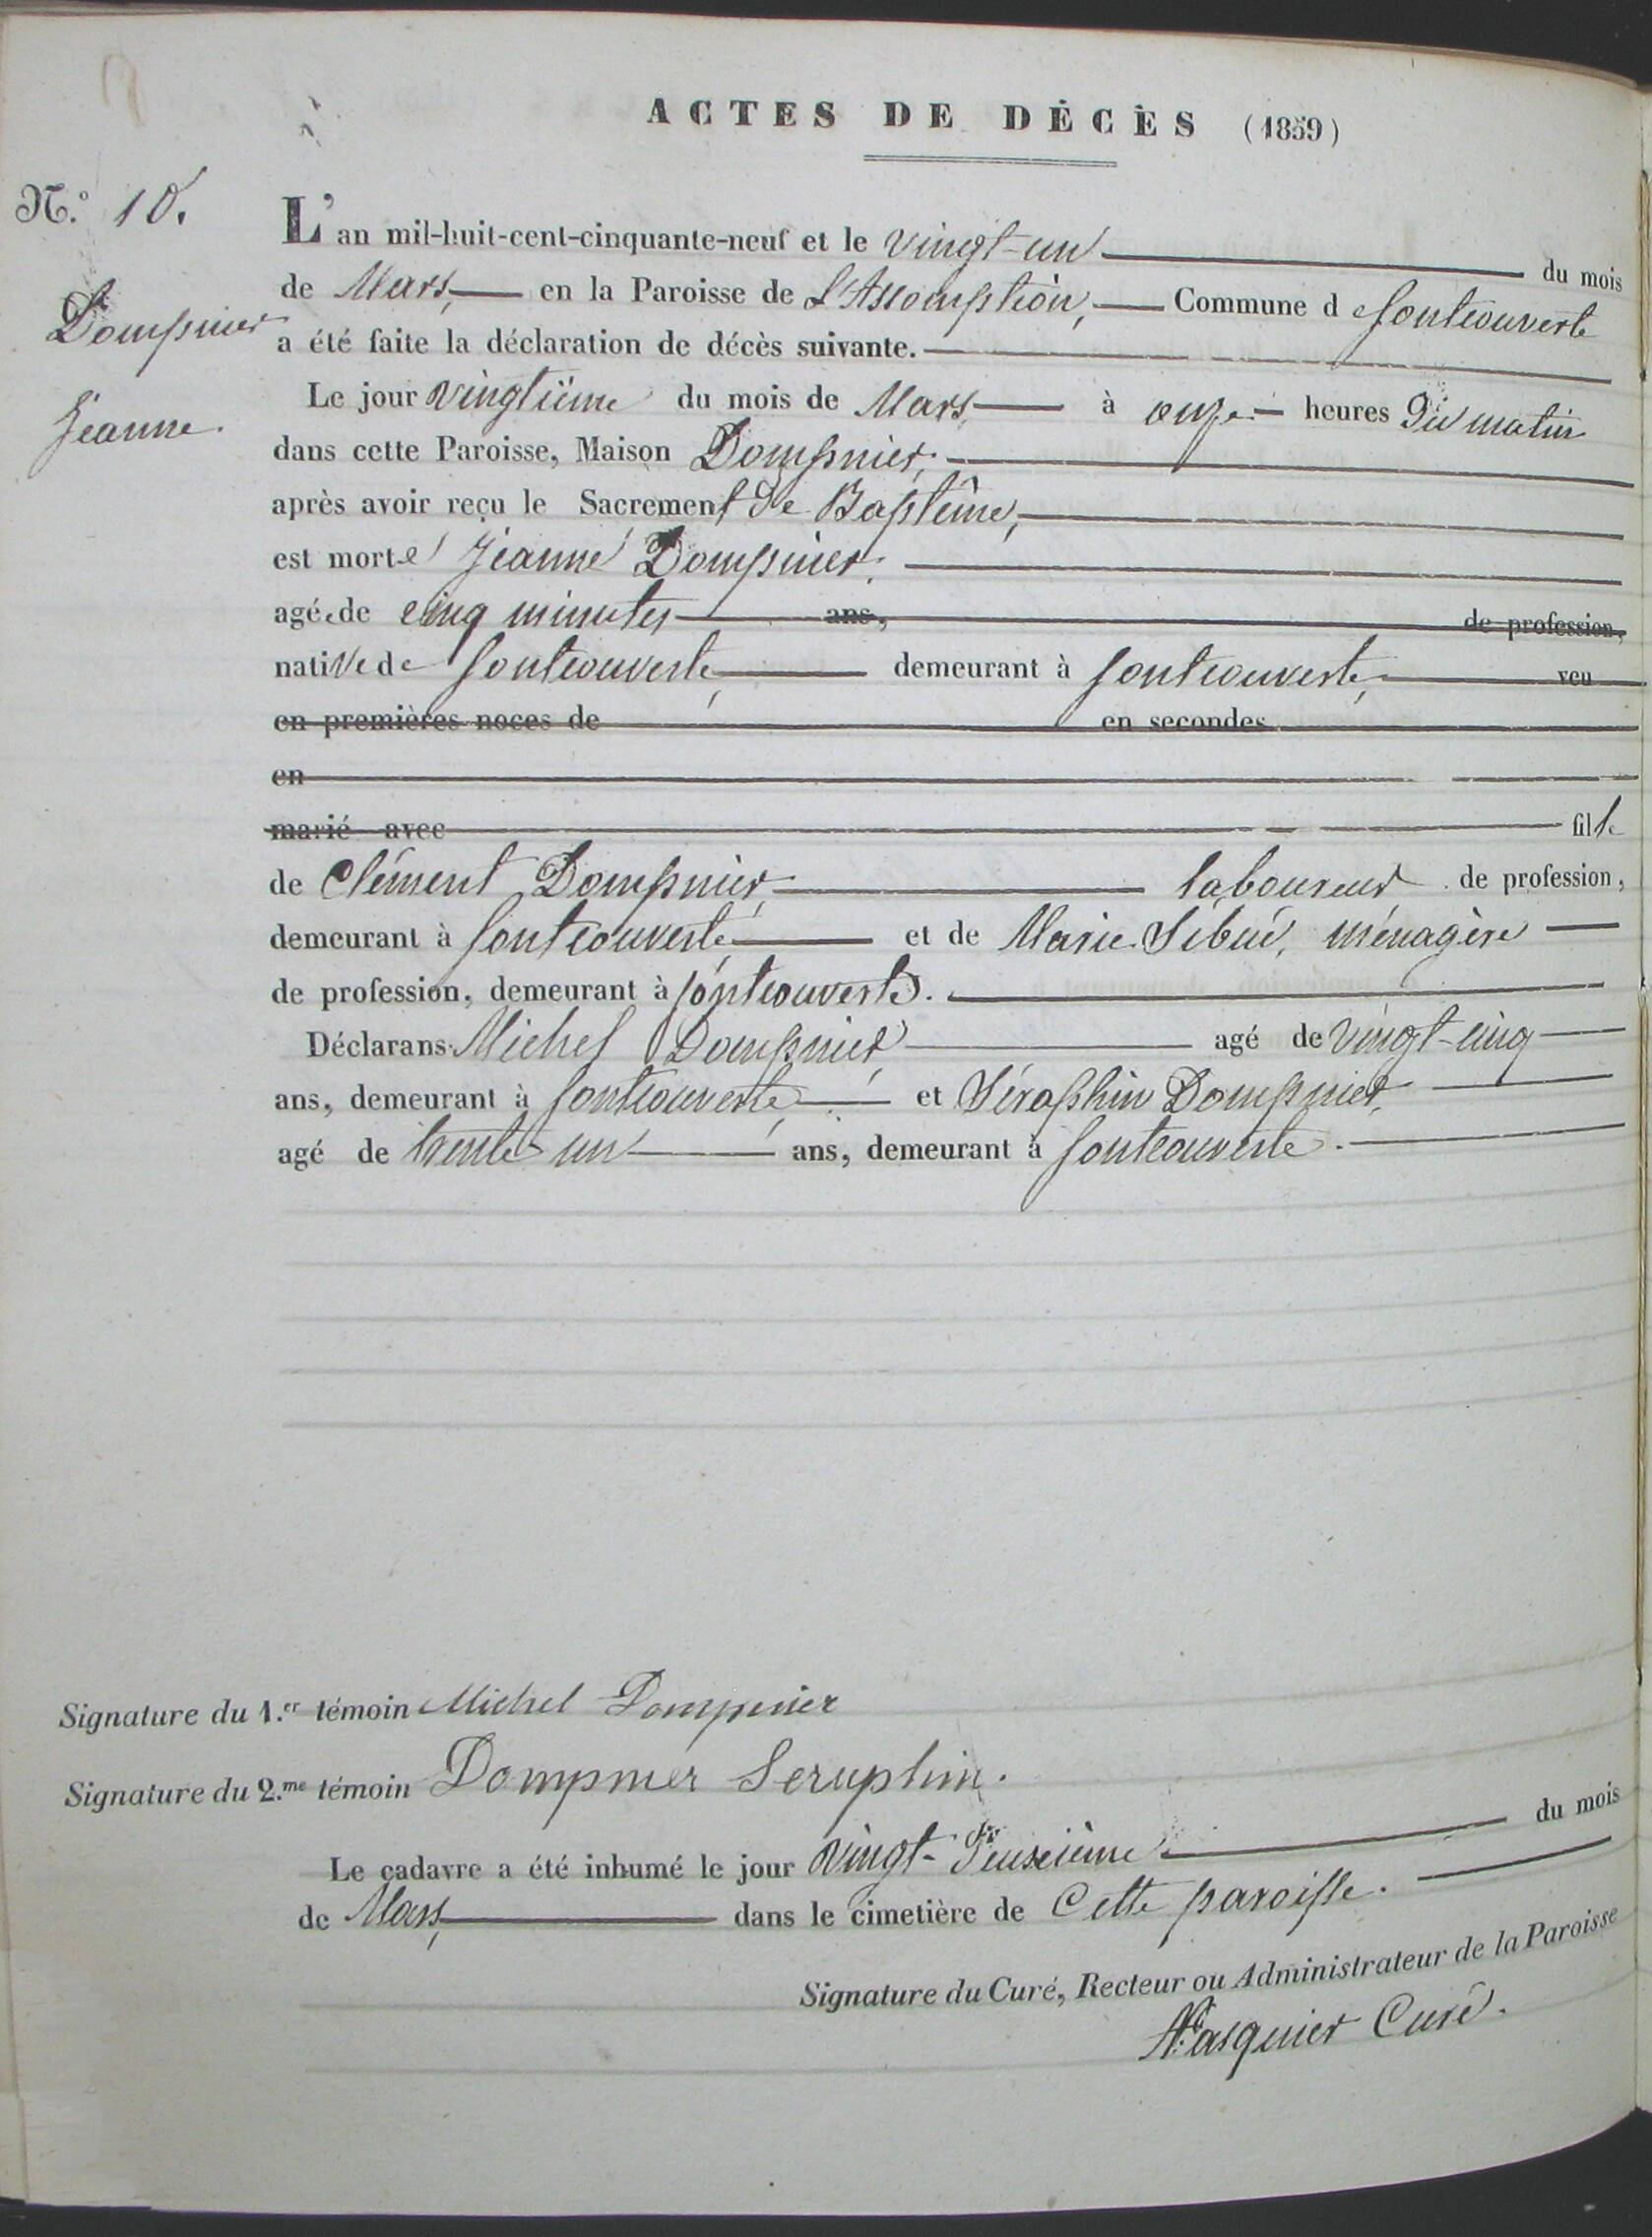 ACTES DE DÉCÈS (1859)
N.º 10.
Dompnier
Jeanne.
L'an mil-huit-cent-cinquante-neuf et le vingt-un du mois
de Mars, en la Paroisse de L'Assomption, Commune d fontcouverte
a été faite la déclaration de décès suivante.
Le jour vingtième du mois de Mars, à onze heures du matin
dans cette Paroisse, Maison Dompnier,
après avoir reçu le Sacrement de Baptême,
est morte Jeanne Dompnier,
agée de cinq minutes ans, de profession,
native de fontcouverte, demeurant à fontcouverte, veu
en premières noces de en secondes
en
marié avec fille
de Clément Dompnier, laboureur de profession,
demeurant à fontcouverte, et de Marie Sibué, ménagère
de profession, demeurant à fontcouverte.
Déclarans Michel Dompnier, agé de vingt-cinq
ans, demeurant à fontcouverte, et Séraphin Dompnier,
agé de trente un ans, demeurant à fontcouverte.
Signature du 1.er témoin Michel Dompnier
Signature du 2.me témoin Dompnier Seruphin.
Le cadavre a été inhumé le jour vingt-deuxième du mois
de Mars, dans le cimetière de Cette paroisse.
Signature du Curé, Recteur ou Administrateur de la Paroisse
Pasquier Curé.